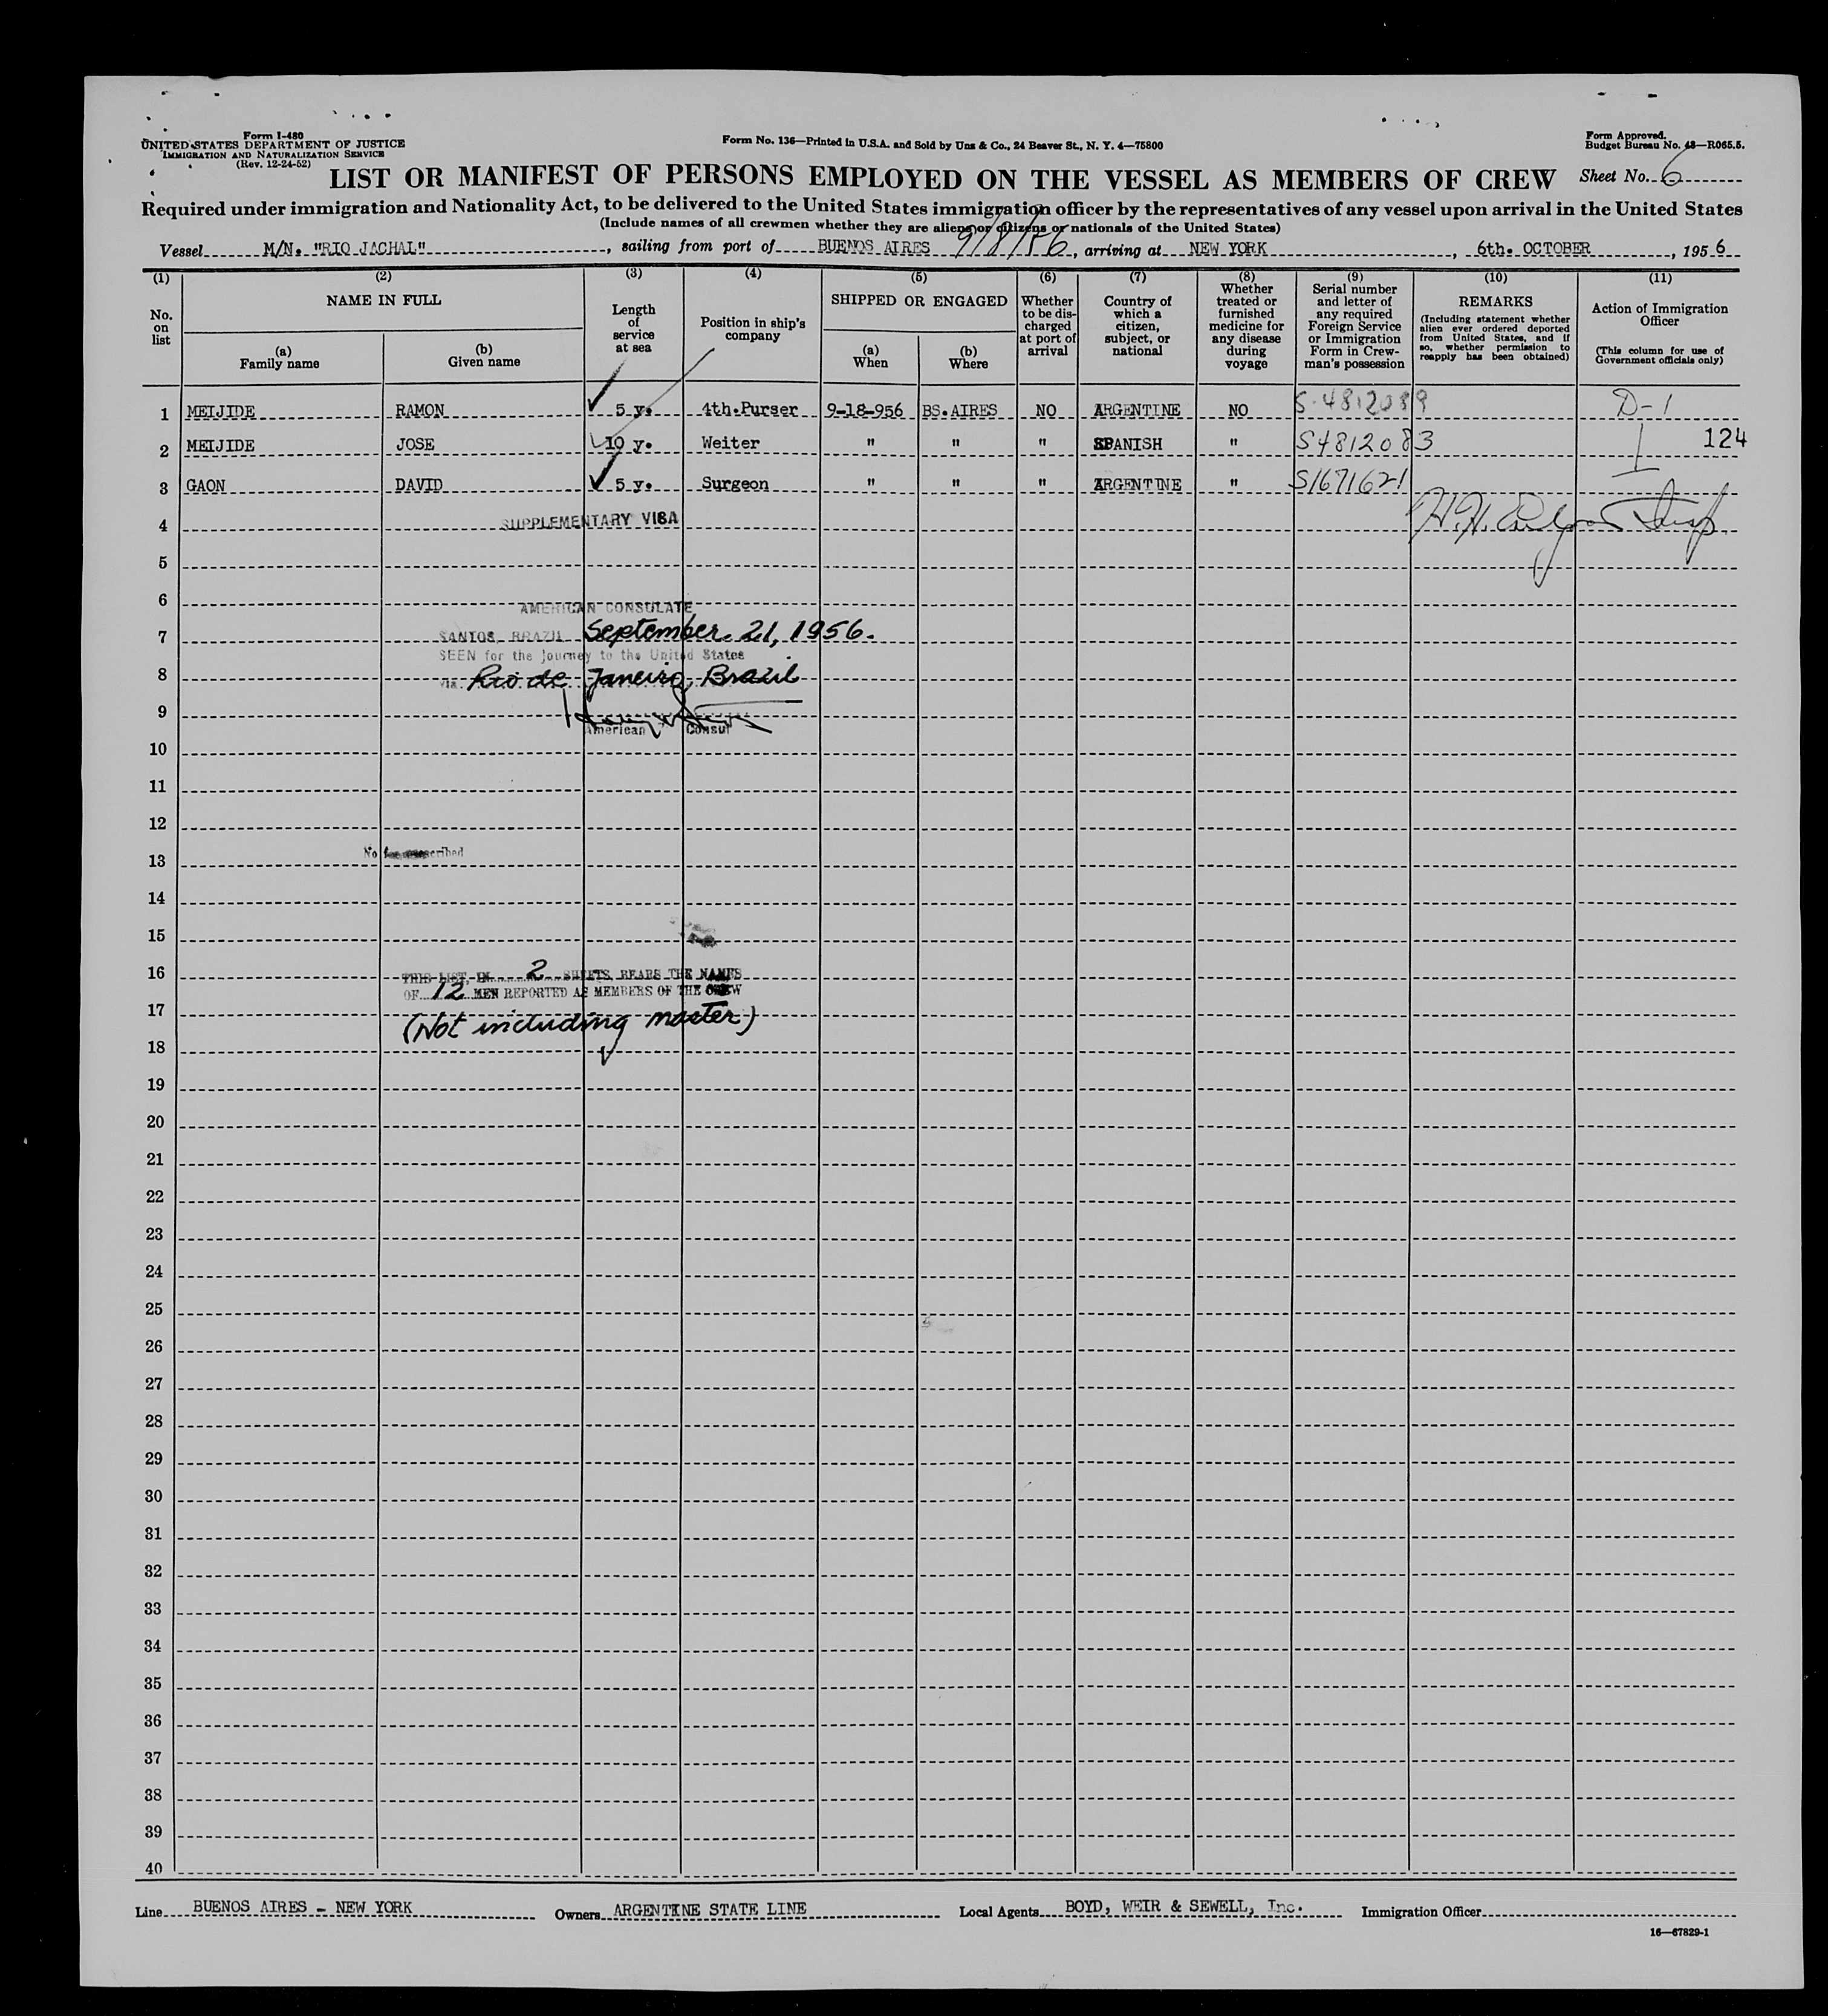 Form I-480
UNITED STATES DEPARTMENT OF JUSTICE
IMMIGRATION AND NATURALIZATION SERVICE
(Rev. 12-24-52)
Form No. 136—Printed in U.S.A. and Sold by Unz & Co., 24 Beaver St., N. Y. 4—75800
Form Approved.
Budget Bureau No. 43—R065.5.
LIST OR MANIFEST OF PERSONS EMPLOYED ON THE VESSEL AS MEMBERS OF CREW
Sheet No. 6
Required under immigration and Nationality Act, to be delivered to the United States immigration officer by the representatives of any vessel upon arrival in the United States
(Include names of all crewmen whether they are aliens or citizens or nationals of the United States)
Vessel M/N. "RIO JACHAL", sailing from port of BUENOS AIRES 9/18/56, arriving at NEW YORK, 6th. OCTOBER, 1956
(1) (2) (3) (4) (5) (6) (7) (8) (9) (10) (11)
No. on list
NAME IN FULL
(a) Family name
(b) Given name
Length of service at sea
Position in ship's company
SHIPPED OR ENGAGED
(a) When
(b) Where
Whether to be discharged at port of arrival
Country of which a citizen, subject, or national
Whether treated or furnished medicine for any disease during voyage
Serial number and letter of any required Foreign Service or Immigration Form in Crewman's possession
REMARKS
(Including statement whether alien ever ordered deported from United States, and if so, whether permission to reapply has been obtained)
Action of Immigration Officer
(This column for use of Government officials only)
1 MEIJIDE RAMON 5 y. 4th.Purser 9-18-956 BS.AIRES NO ARGENTINE NO S-4812089 D-1
2 MEIJIDE JOSE 10 y. Weiter " " " SPANISH " S4812083 124
3 GAON DAVID 5 y. Surgeon " " " ARGENTINE " S1671621
4 SUPPLEMENTARY VISA
5
6 AMERICAN CONSULATE
7 SANTOS, BRAZIL September 21, 1956.
SEEN for the journey to the United States
8 via Rio de Janeiro, Brazil
9
American Consul
10
11
12
13 No fee prescribed
14
15
16 THIS LIST, IN 2 SHEETS, BEARS THE NAMES
OF 12 MEN REPORTED AS MEMBERS OF THE CREW
17 (Not including master)
18
19
20
21
22
23
24
25
26
27
28
29
30
31
32
33
34
35
36
37
38
39
40
Line BUENOS AIRES - NEW YORK Owners ARGENTINE STATE LINE Local Agents BOYD, WEIR & SEWELL, Inc. Immigration Officer
16—67829-1